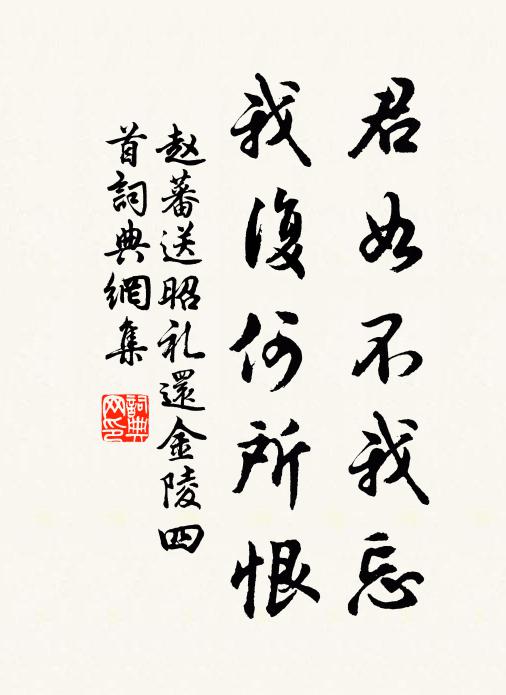 君如不我忘
我復何所恨
赵蕃送昭礼還金陵四
首詞典網集
詞典
网印